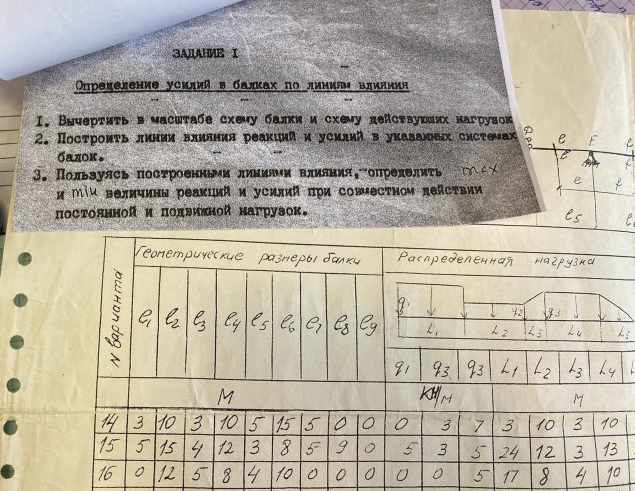 ЗАДАНИЕ I
Определение усилий в балках по линиям влияния
1. Вычертить в масштабе схему балки и схему действующих нагрузок
2. Построить линии влияния реакций и усилий в указанных системах
балок.
3. Пользуясь построенными линиями влияния, определить max
и min величины реакций и усилий при совместном действии
постоянной и подвижной нагрузок.
e E
e e
e5
N варианта Геометрические размеры балки Распределенная нагрузка
q1 q2 q3
L1 L2 L3 L4 L5
e1 e2 e3 e4 e5 e6 e7 e8 e9 q1 q3 q3 L1 L2 L3 L4
М кН/м М
14 3 10 3 10 5 15 5 0 0 0 3 7 3 10 3 10
15 5 15 4 12 3 8 5 9 0 5 3 5 24 12 3 13
16 0 12 5 8 4 10 0 0 0 0 0 5 17 8 4 10